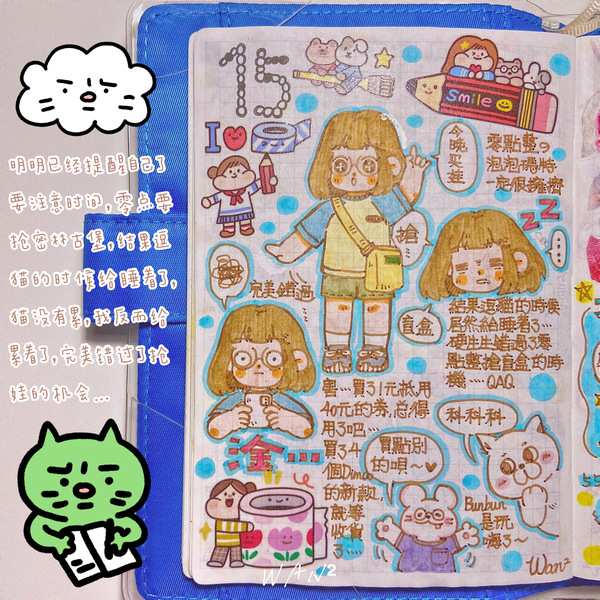 明明已经提醒自己了
要注意时间,零点要
抢密林古堡,结果逗
猫的时候给睡着了,
猫没有累,我反而给
累着了,完美错过了抢
娃的机会...
15
Smile
I
今晚买娃
零點整の
泡泡瑪特
一定很擁擠
搶
ZZ
....
盲盒
完美錯過
結果逗貓的時候
居然給睡着了...
硬生生錯過了零
點整搶盲盒的時
機....QAQ
害...買了1元抵用
40元的券,总得
用了吧...
買了4
個Dimoo
的新款,
就等
收貨
了...
淦...
買點別
的唄~
科科科
Bunbun
是玩
嗨了~
Wan²
WAN²